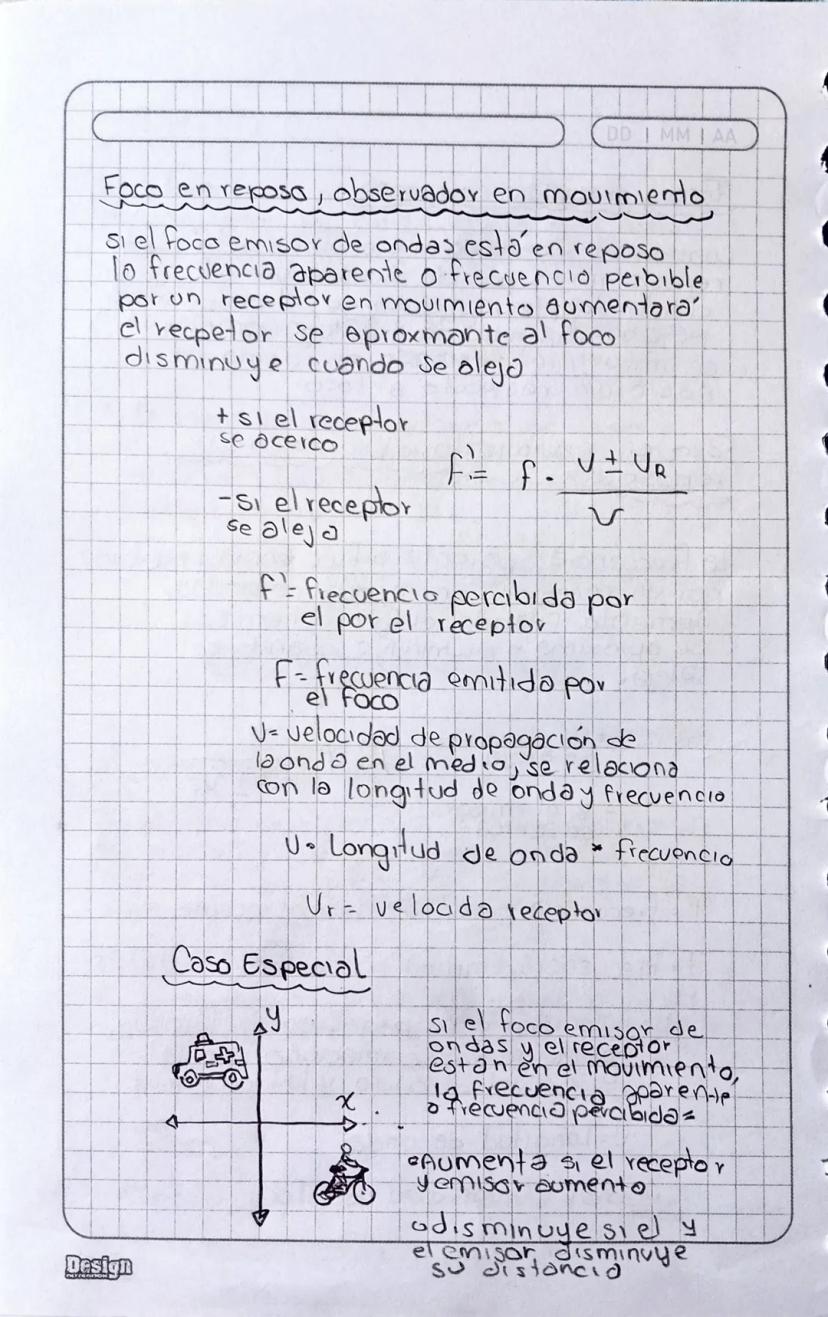 DD | MM | AA
Foco en reposo, observador en movimiento
si el foco emisor de ondas está en reposo
la frecuencia aparente o frecuencia peibible
por un receptor en movimiento aumentara
el recpetor se aproxmante al foco
disminuye cuando se aleja
+ si el receptor
se acerca
- si el receptor
se aleja
f' = f · (V ± VR) / V
f' = frecuencia percibida por
el por el receptor
F = frecuencia emitida por
el foco
V = velocidad de propagación de
la onda en el medio, se relaciona
con la longitud de onda y frecuencia
V = Longitud de onda * frecuencia
Vr = velocida receptor
Caso Especial
y
x
si el foco emisor de
ondas y el receptor
estan en el movimiento,
la frecuencia aparente
o frecuencia percibida =
•Aumenta si el receptor
y emisor aumento
odisminuye si el y
el emisor disminuye
su distancia
Design